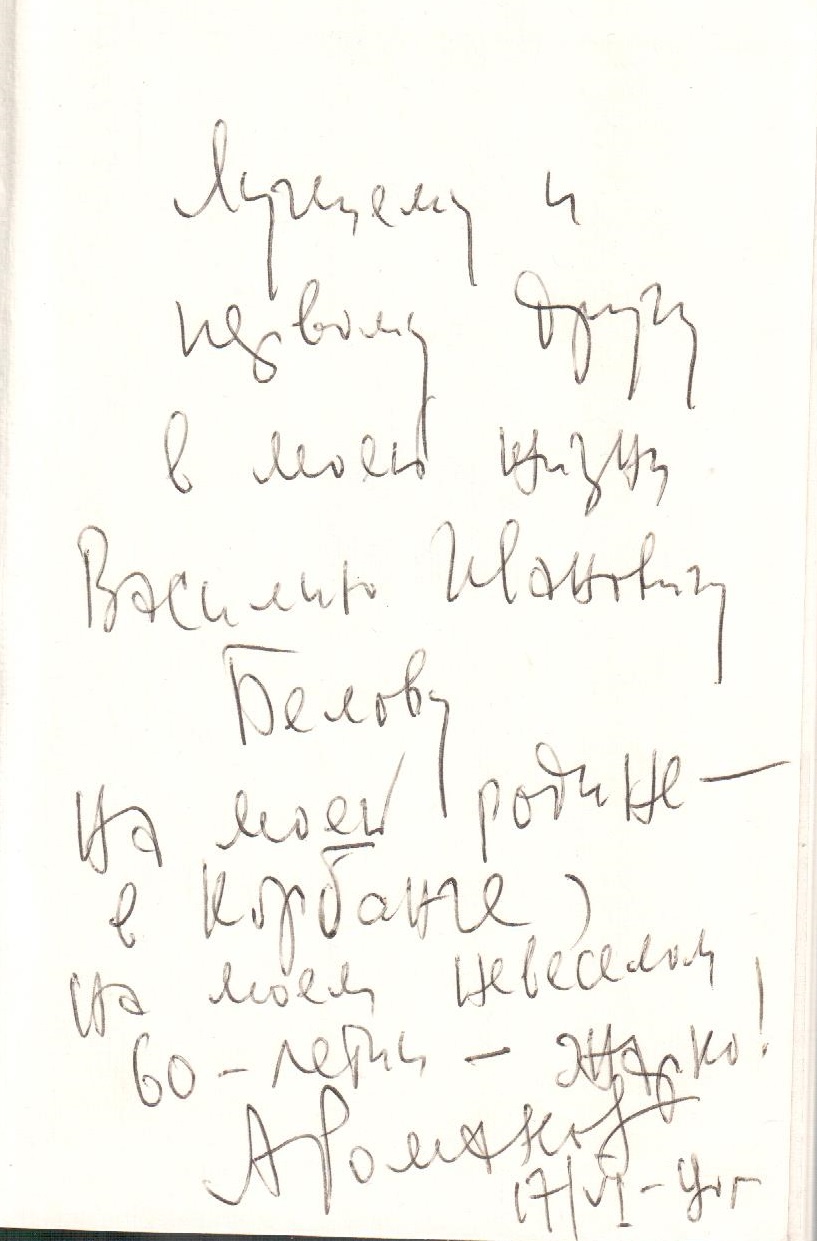 Лучшему и
первому другу
в моей жизни
Василию Ивановичу
Белову
на моей родине —
в Корбанге,
на моем невеселом
60-летии — жарко!
А Романов
17/VI-90г